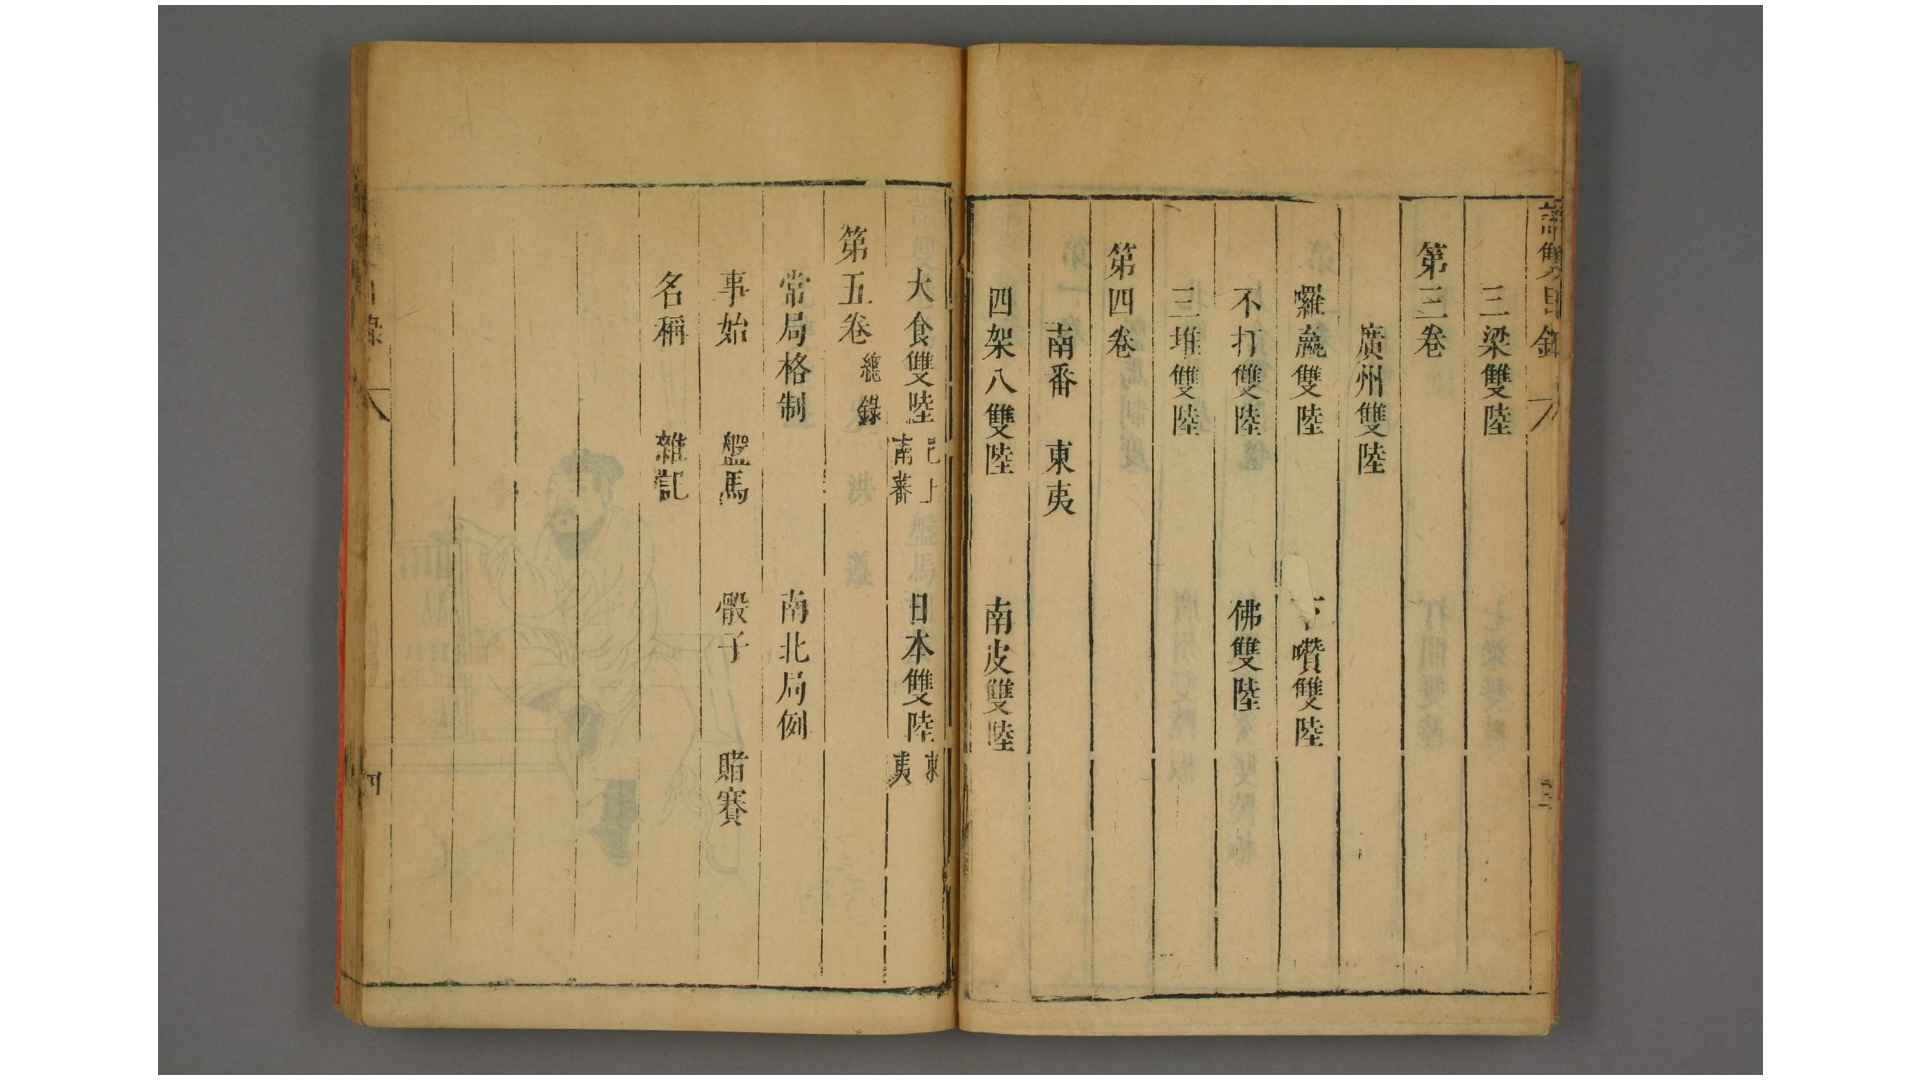 譜雙目錄
三
三梁雙陸
第三卷
廣州雙陸
囉贏雙陸 下囋雙陸
不打雙陸 佛雙陸
三堆雙陸
第四卷
南番 東夷
四架八雙陸 南皮雙陸
大食雙陸 已上南蕃 日本雙陸 東夷
第五卷 總錄
常局格制 南北局例
事始 盤馬 骰子 賭賽
名稱 雜記
四